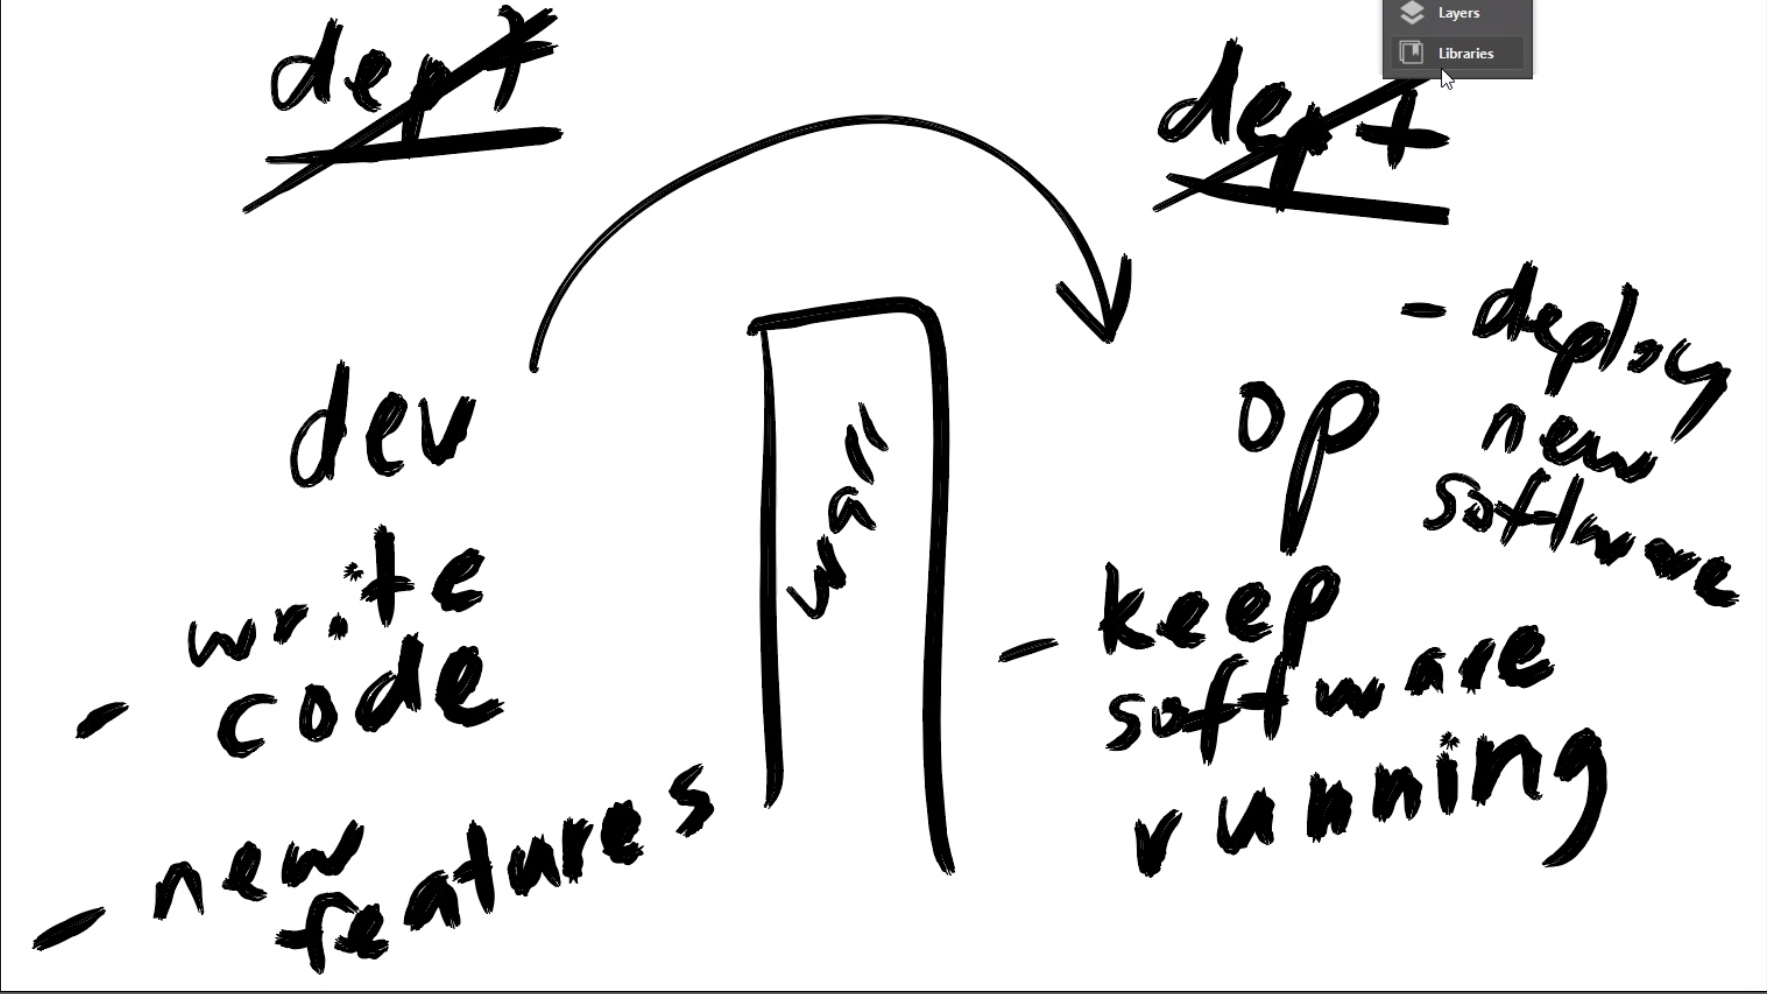 dept
dept
Layers
Libraries
dev
- write
code
- new
features
wall
op
- deploy
new
software
- keep
software
running